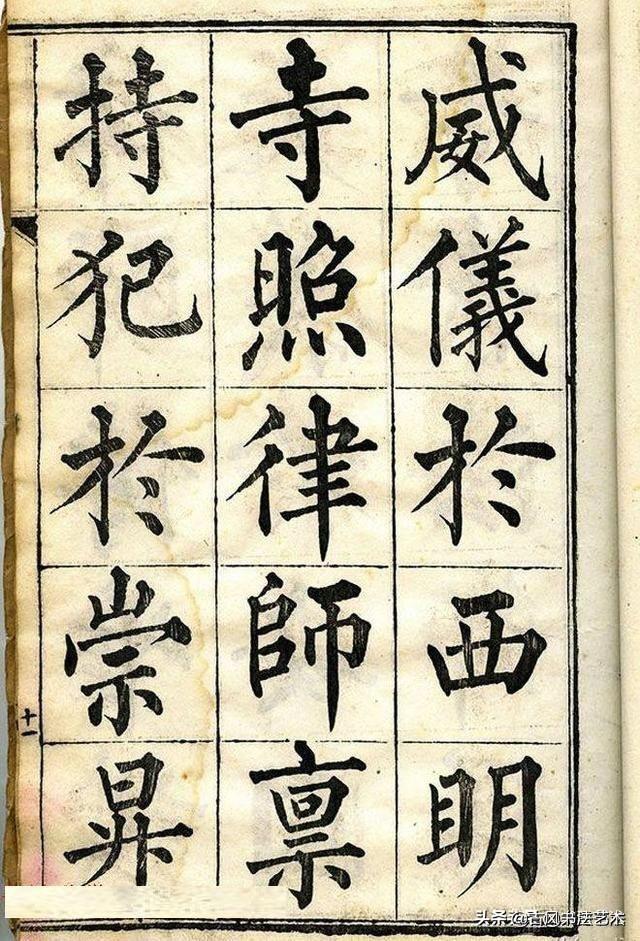 威儀於西明
寺照律師禀
持犯於崇昇
十一
头条@古风书法艺术